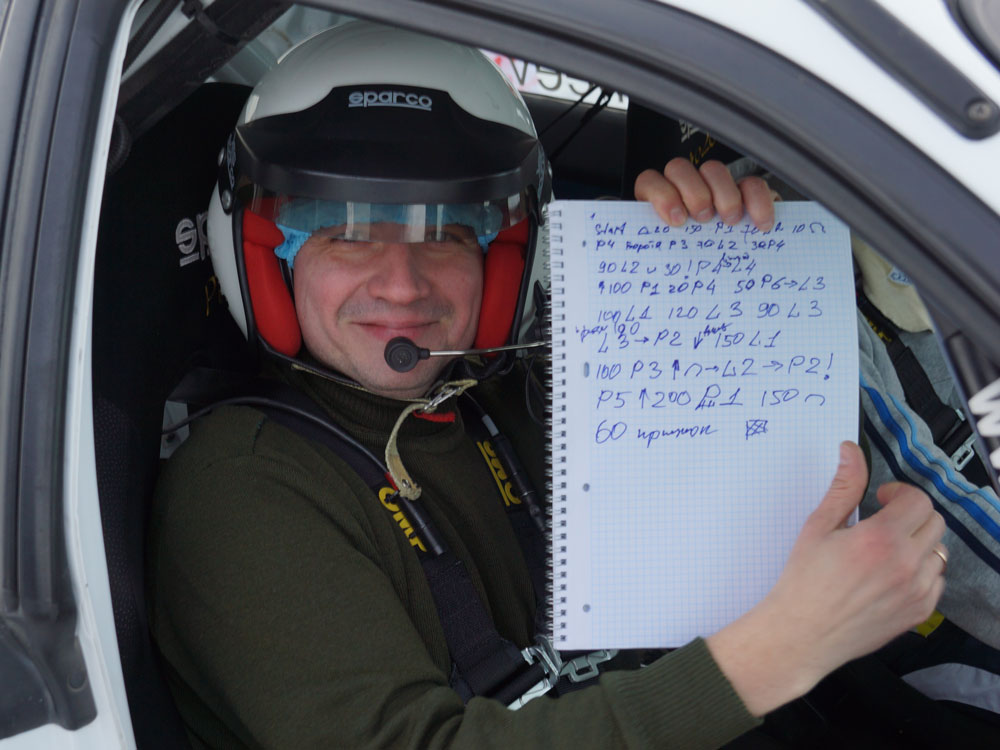 sparco
Start 20 150 P3 70 L2 10
P4 ворота P3 70 L2 30 P4
90 L2 и 30! P4 L4
↑100 P1 20 P4 50 P6→L3
100 L1 120 L3 90 L3
L3→P2 ↓ 150 L1
100 P3 ↑∩→L2→P2!
P5 ↑200 1 150 ∩
60 прыжок
OMP